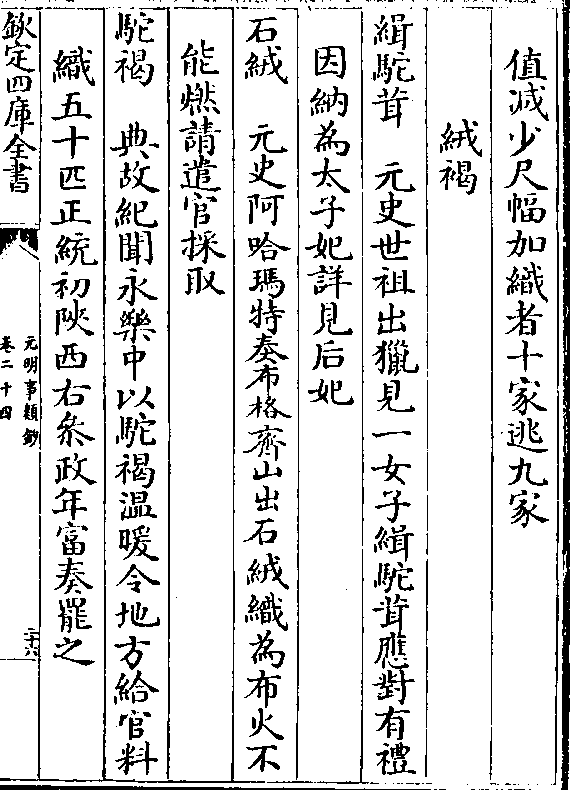 值减少尺幅加織者十家逃九家
絨褐
緝駝茸　元史世祖出獵見一女子緝駝茸應對有禮
因納為太子妃詳見后妃
石絨　元史阿哈瑪特奏布格齊山出石絨織為布火不
能燃請遣官採取
駝褐　典故紀聞永樂中以駝褐温暖令地方給官料
織五十匹正統初陜西右叅政年富奏罷之
欽定四庫全書
元明事類鈔
卷二十四
二十六